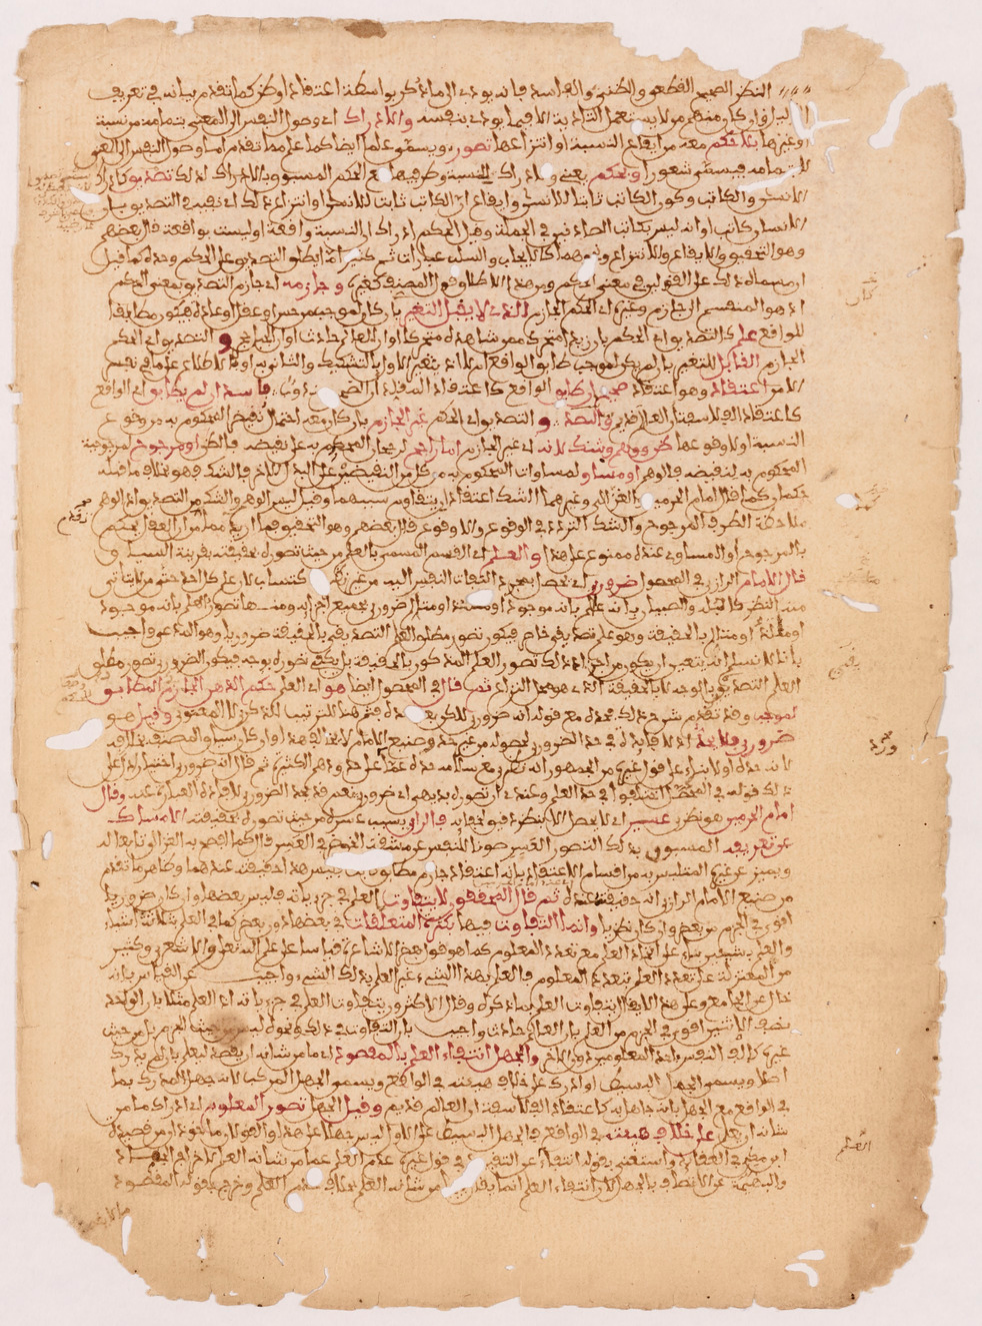 النظر الصحيح القطعي والظني والفاسد فانه يودي الى ما ذكر بواسطة اعتقاد او ظن كما تقدم بيانه في تعريف
الدليل وان كان منهم من لا يستعمل التادية الا فيما يودي بنفسه والادراك اي وصول النفس الى المعنى بتمامه من نسبة
او غيرها بلا حكم معه من ايقاع النسبة او انتزاعها تصور ويسمى علما ايضا كما علم مما تقدم اما وصول النفس الى المعنى
لا بتمامه فيسمى شعورا وبحكم يعني والادراك للنسبة وطرفيها مع الحكم المسبوق بالادراك لذلك تصديق كادراك
الانسان والكاتب وكون الكاتب ثابتا للانسان وايقاع ان الكاتب ثابت للانسان او انتزاع ذلك اي نفيه في التصديق بان
الانسان كاتب او انه ليس بكاتب الصادقين في الجملة وقيل الحكم ادراك ان النسبة واقعة او ليست بواقعة قال بعضهم
وهو التحقيق والايقاع والانتزاع ونحوهما كالايجاب والسلب عبارات ثم كثيرا ما يطلق التصديق على الحكم وحده كما قيل
ان مسماه ذلك على القولين في معنى الحكم ومن هذا الاطلاق قول المصنف كغيره وجازمه اي جازم التصديق بمعنى الحكم
اذ هو المنقسم الى جازم وغيره اي الحكم الجازم الذي لا يقبل التغير بان كان لموجب من حس او عقل او عادة فيكون مطابقا
للواقع علم كالتصديق اي الحكم بان زيدا متحرك ممن شاهده متحركا او ان العالم حادث او ان الجبل حجر و التصديق اي الحكم
الجازم القابل للتغير بان لم يكن لموجب طابق الواقع ام لا اذ يتغير الاول بالتشكيك والثاني به او بالاطلاع على ما في نفس
الامر اعتقاد وهو اعتقاد صحيح ان طابق الواقع كاعتقاد المقلد ان الضحى مندوب فاسد ان لم يطابق اي الواقع
كاعتقاد الفلاسفة ان العالم قديم و التصديق اي الحكم غير الجازم بان كان معه احتمال نقيض المحكوم به من وقوع
النسبة او لا وقوعها ظن ووهم وشك لانه اي غير الجازم اما راجح لرجحان المحكوم به على نقيضه فالظن او مرجوح لمرجوحية
المحكوم به لنقيضه فالوهم او مساو لمساوات المحكوم به من كل من النقيضين على البدل للاخر فالشك فهو بخلاف ما قبله
حكمان كما قال امام الحرمين والغزالي وغيرهما الشك اعتقادان يتقاوم سببهما وقيل ليس الوهم والشك من التصديق اذ الوهم
ملاحظة الطرف المرجوح والشك التردد في الوقوع واللاوقوع قال بعضهم وهو التحقيق فما اريد مما مر ان العقل يحكم
بالمرجوح او المساوي عنده ممنوع على هذا والعلم اي القسم المسمى بالعلم من حيث تصوره بحقيقته بقرينة السياق
قال الامام الرازي في المحصول ضروري اي يحصل بمجرد التفات النفس اليه من غير نظر واكتساب لان علم كل احد حتى من لا يتاتى
منه النظر كالبله والصبيان بانه عالم بانه موجود او ملتذ او متالم ضروري بجميع اجزائه ومنها تصور العلم بانه موجود
او ملتذ او متالم بالحقيقة وهو علم تصديقي خاص فيكون تصور مطلق العلم التصديقي بالحقيقة ضروريا وهو المدعى واجيب
بانا لا نسلم انه يتعين ان يكون من اجزاء ذلك تصور العلم المذكور بالحقيقة بل يكفي تصوره بوجه فيكون الضروري تصور مطلق
العلم التصديقي بالوجه لا بالحقيقة الذي هو محل النزاع ثم قال في المحصول ايضا هو اي العلم حكم الذهن الجازم المطابق
لموجب وقد تقدم شرح ذلك فحده مع قوله انه ضروري لكن بعد حده فثم هنا للترتيب الذكري لا المعنوي وقيل هو
ضروري فلا يحد اذ لا فايدة في حد الضروري لحصوله من غير حد وصنيع الامام لا يخالف هذا وان كان سياق المصنف بخلافه
لانه حده اولا بناء على قول غيره من الجمهور انه نظري مع سلامة حده عما ورد على حدودهم الكثيرة ثم قال انه ضروري اختيارا دل على
ذلك قوله في المحصل اختلفوا في حد العلم وعندي ان تصوره بديهي اي ضروري نعم قد يحد الضروري لافادة العبارة عنه وقال
امام الحرمين هو نظري عسير اي لا يحصل الا بنظر دقيق لخفائه فالراي بسبب عسره من حيث تصوره بحقيقته الامساك
عن تعريفه المسبوق بذلك التصور العسير صونا للنفس عن مشقة الخوض في العسير قال كما افصح به الغزالي تابعا له
ويميز عن غيره الملتبس به من اقسام الاعتقاد بانه اعتقاد جازم مطابق ثابت فليس هذا حقيقته عندهما وظاهر ما تقدم
من صنيع الامام الرازي انه حقيقته عنده ثم قال المحققون لا يتفاوت العلم في جزئياته فليس بعضها وان كان ضروريا
اقوى في الجزم من بعض وان كان نظريا وانما التفاوت فيها بكثرة المتعلقات في بعضها دون بعض كما في العلم بثلاثة اشياء
والعلم بشيئين بناء على اتحاد العلم مع تعدد المعلوم كما هو قول بعض الاشاعرة قياسا على علم الله تعالى والاشعري وكثير
من المعتزلة على تعدد العلم بتعدد المعلوم فالعلم بهذا الشيء غير العلم بذلك الشيء واجيب عن القياس بانه
خال عن الجامع وعلى هذا لا يقال يتفاوت العلم بما ذكر وقال الاكثرون يتفاوت العلم في جزئياته اذ العلم مثلا بان الواحد
نصف الاثنين اقوى في الجزم من العلم بان العالم حادث واجيب بان التفاوت في ذلك ونحوه ليس من حيث الجزم بل من حيث
غيره كالف النفس باحد المعلومين دون الاخر والجهل انتفاء العلم بالمقصود اي ما من شانه ان يقصد ليعلم بان لم يدرك
اصلا ويسمى الجهل البسيط او ادرك على خلاف هيئته في الواقع ويسمى الجهل المركب لانه جهل المدرك بما
في الواقع مع الجهل بانه جاهل به كاعتقاد الفلاسفة ان العالم قديم وقيل الجهل تصور المعلوم اي ادراك ما من
شانه ان يعلم على خلاف هيئته في الواقع فالجهل البسيط على الاول ليس جهلا على هذا والقولان ماخوذان من قصيدة
ابن مكي في العقائد واستغنى بقوله انتفاء عن التقييد في قول غيره عدم العلم عما من شانه العلم لاخراج الجماد
والبهيمة عن الاتصاف بالجهل لان انتفاء العلم انما يقال فيما من شانه العلم بخلاف عدم العلم وخرج بقوله المقصود
ما لا يقصد